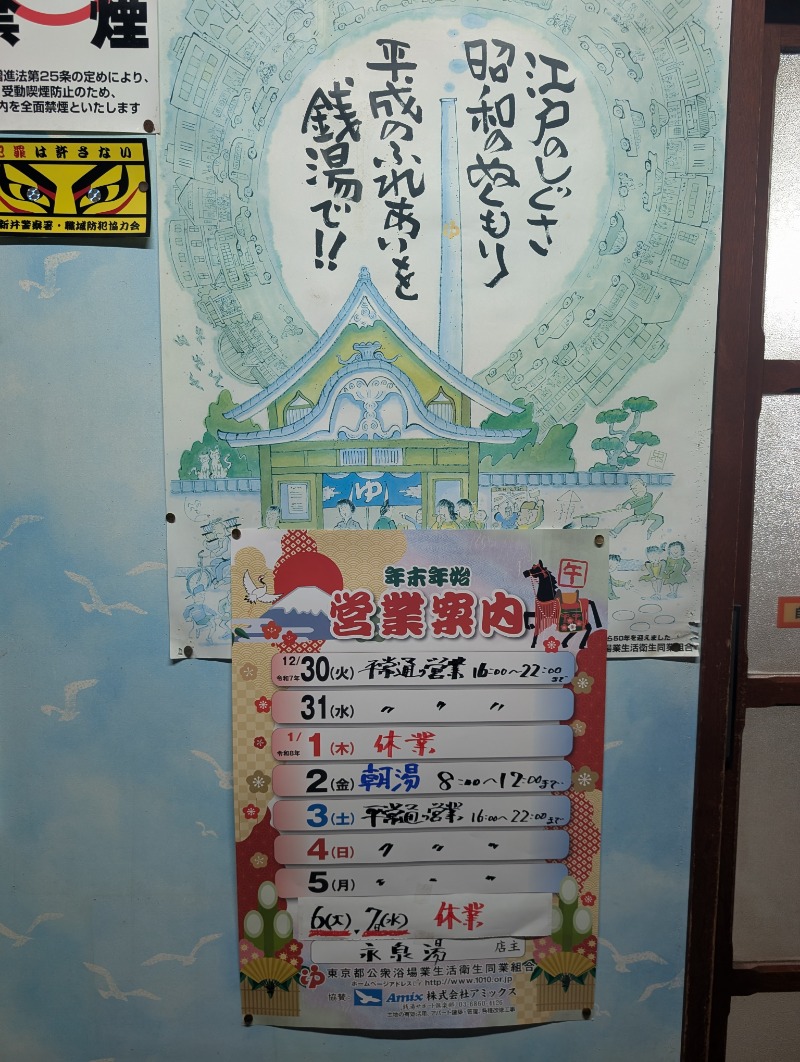 禁煙
増進法第25条の定めにより、
受動喫煙防止のため、
内を全面禁煙といたします
犯罪は許さない
新井警察署・職域防犯協力会
江戸のしぐさ
昭和のぬくもり
平成のふれあいを
銭湯で!!
ゆ
ら50年を迎えました
場業生活衛生同業組合
年末年始
営業案内
午
12/30(火) 令和7年 平常通り営業 16:00〜22:00まで
31(水) 〃 〃 〃
1/1(木) 令和8年 休業
2(金) 朝湯 8:00〜12:00まで
3(土) 平常通り営業 16:00〜22:00まで
4(日) 〃 〃 〃
5(月) 〃 〃 〃
6(火)、7(水) 休業
永泉湯 店主
ゆ 東京都公衆浴場業生活衛生同業組合
ホームページアドレス:http://www.1010.or.jp
協賛 Amix 株式会社アミックス